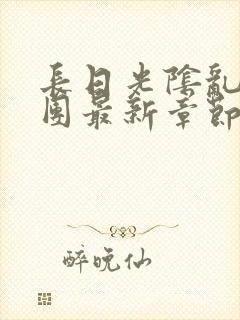 長日光陰亂
團最新章節
醉晚仙